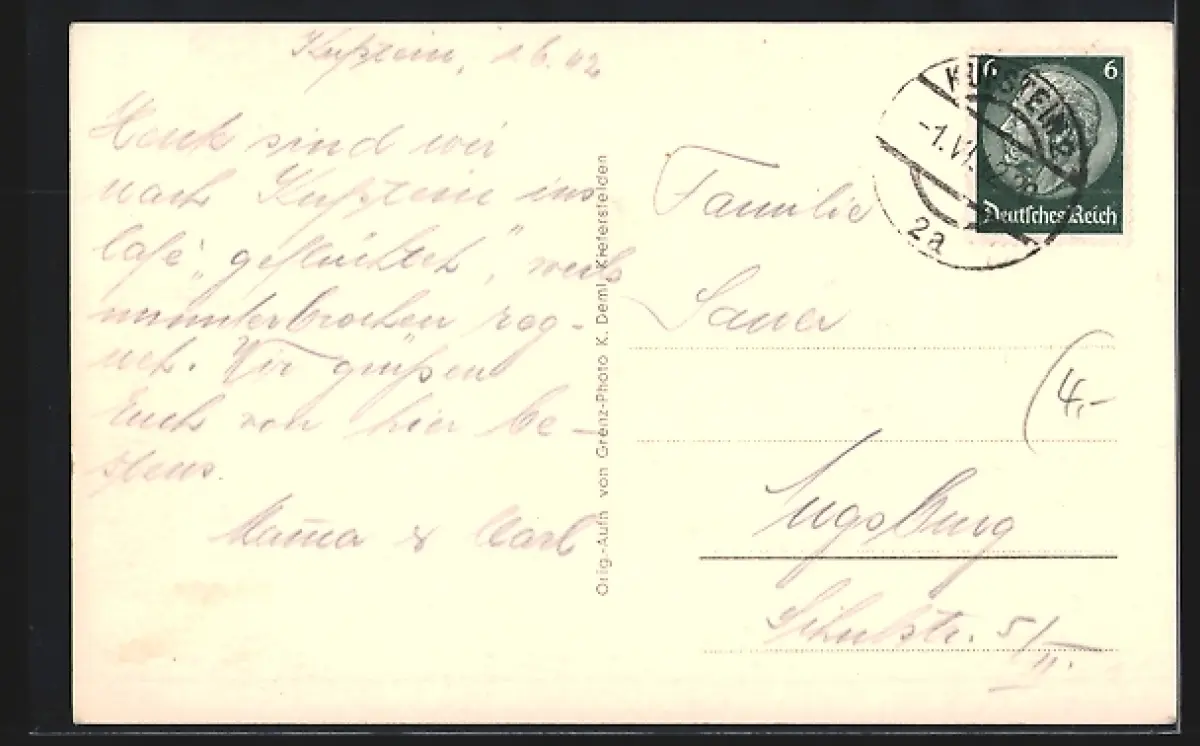 Kufstein, 1.6.42
Heute sind wir
nach Kufstein ins
Café „geflüchtet", weils
ununterbrochen reg-
net. Wir grüßen
Euch von hier be-
stens.
Mama & Carl
Orig.-Aufn von Grenz-Photo K. Deml, Kiefersfelden
KUFSTEIN
-1.VI.
2a
6 6
Deutsches Reich
Familie
Sauer
(4,-
Augsburg
5/II.